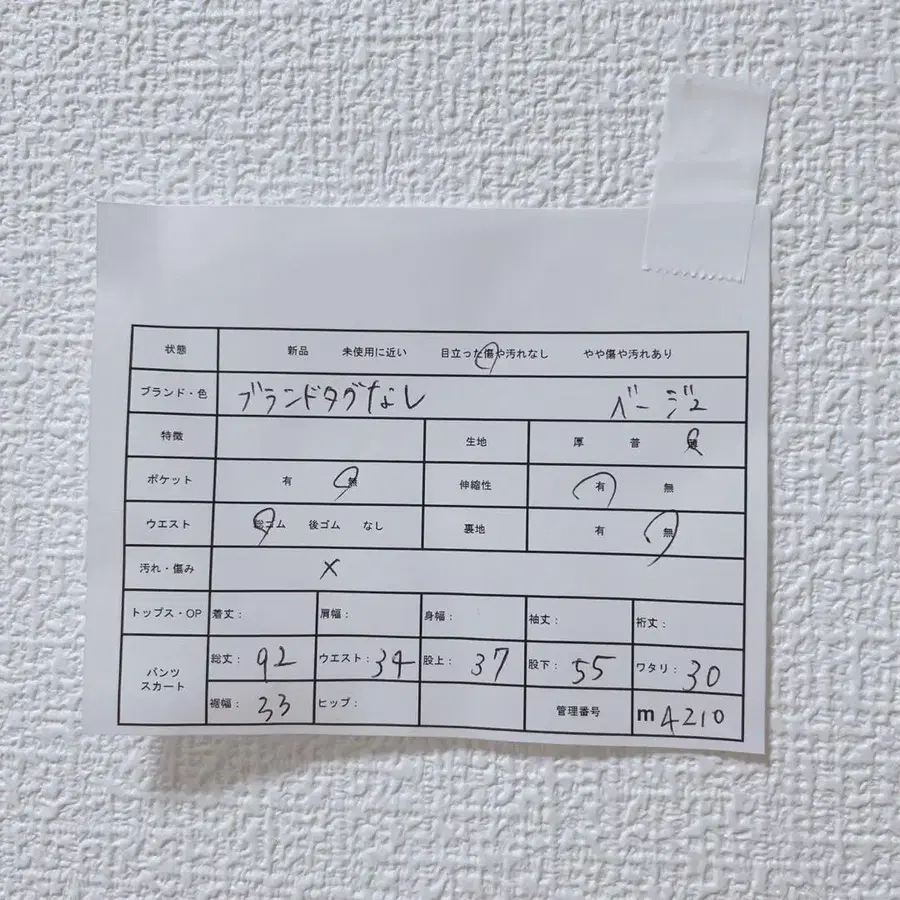 状態 新品 未使用に近い 目立った傷や汚れなし やや傷や汚れあり
ブランド・色 ブランドタグなし ベージュ
特徴 生地 厚 普 薄
ポケット 有 無 伸縮性 有 無
ウエスト 総ゴム 後ゴム なし 裏地 有 無
汚れ・傷み ×
トップス・OP 着丈： 肩幅： 身幅： 袖丈： 裄丈：
パンツ スカート 総丈：92 ウエスト：34 股上：37 股下：55 ワタリ：30
裾幅：33 ヒップ： 管理番号 m4210